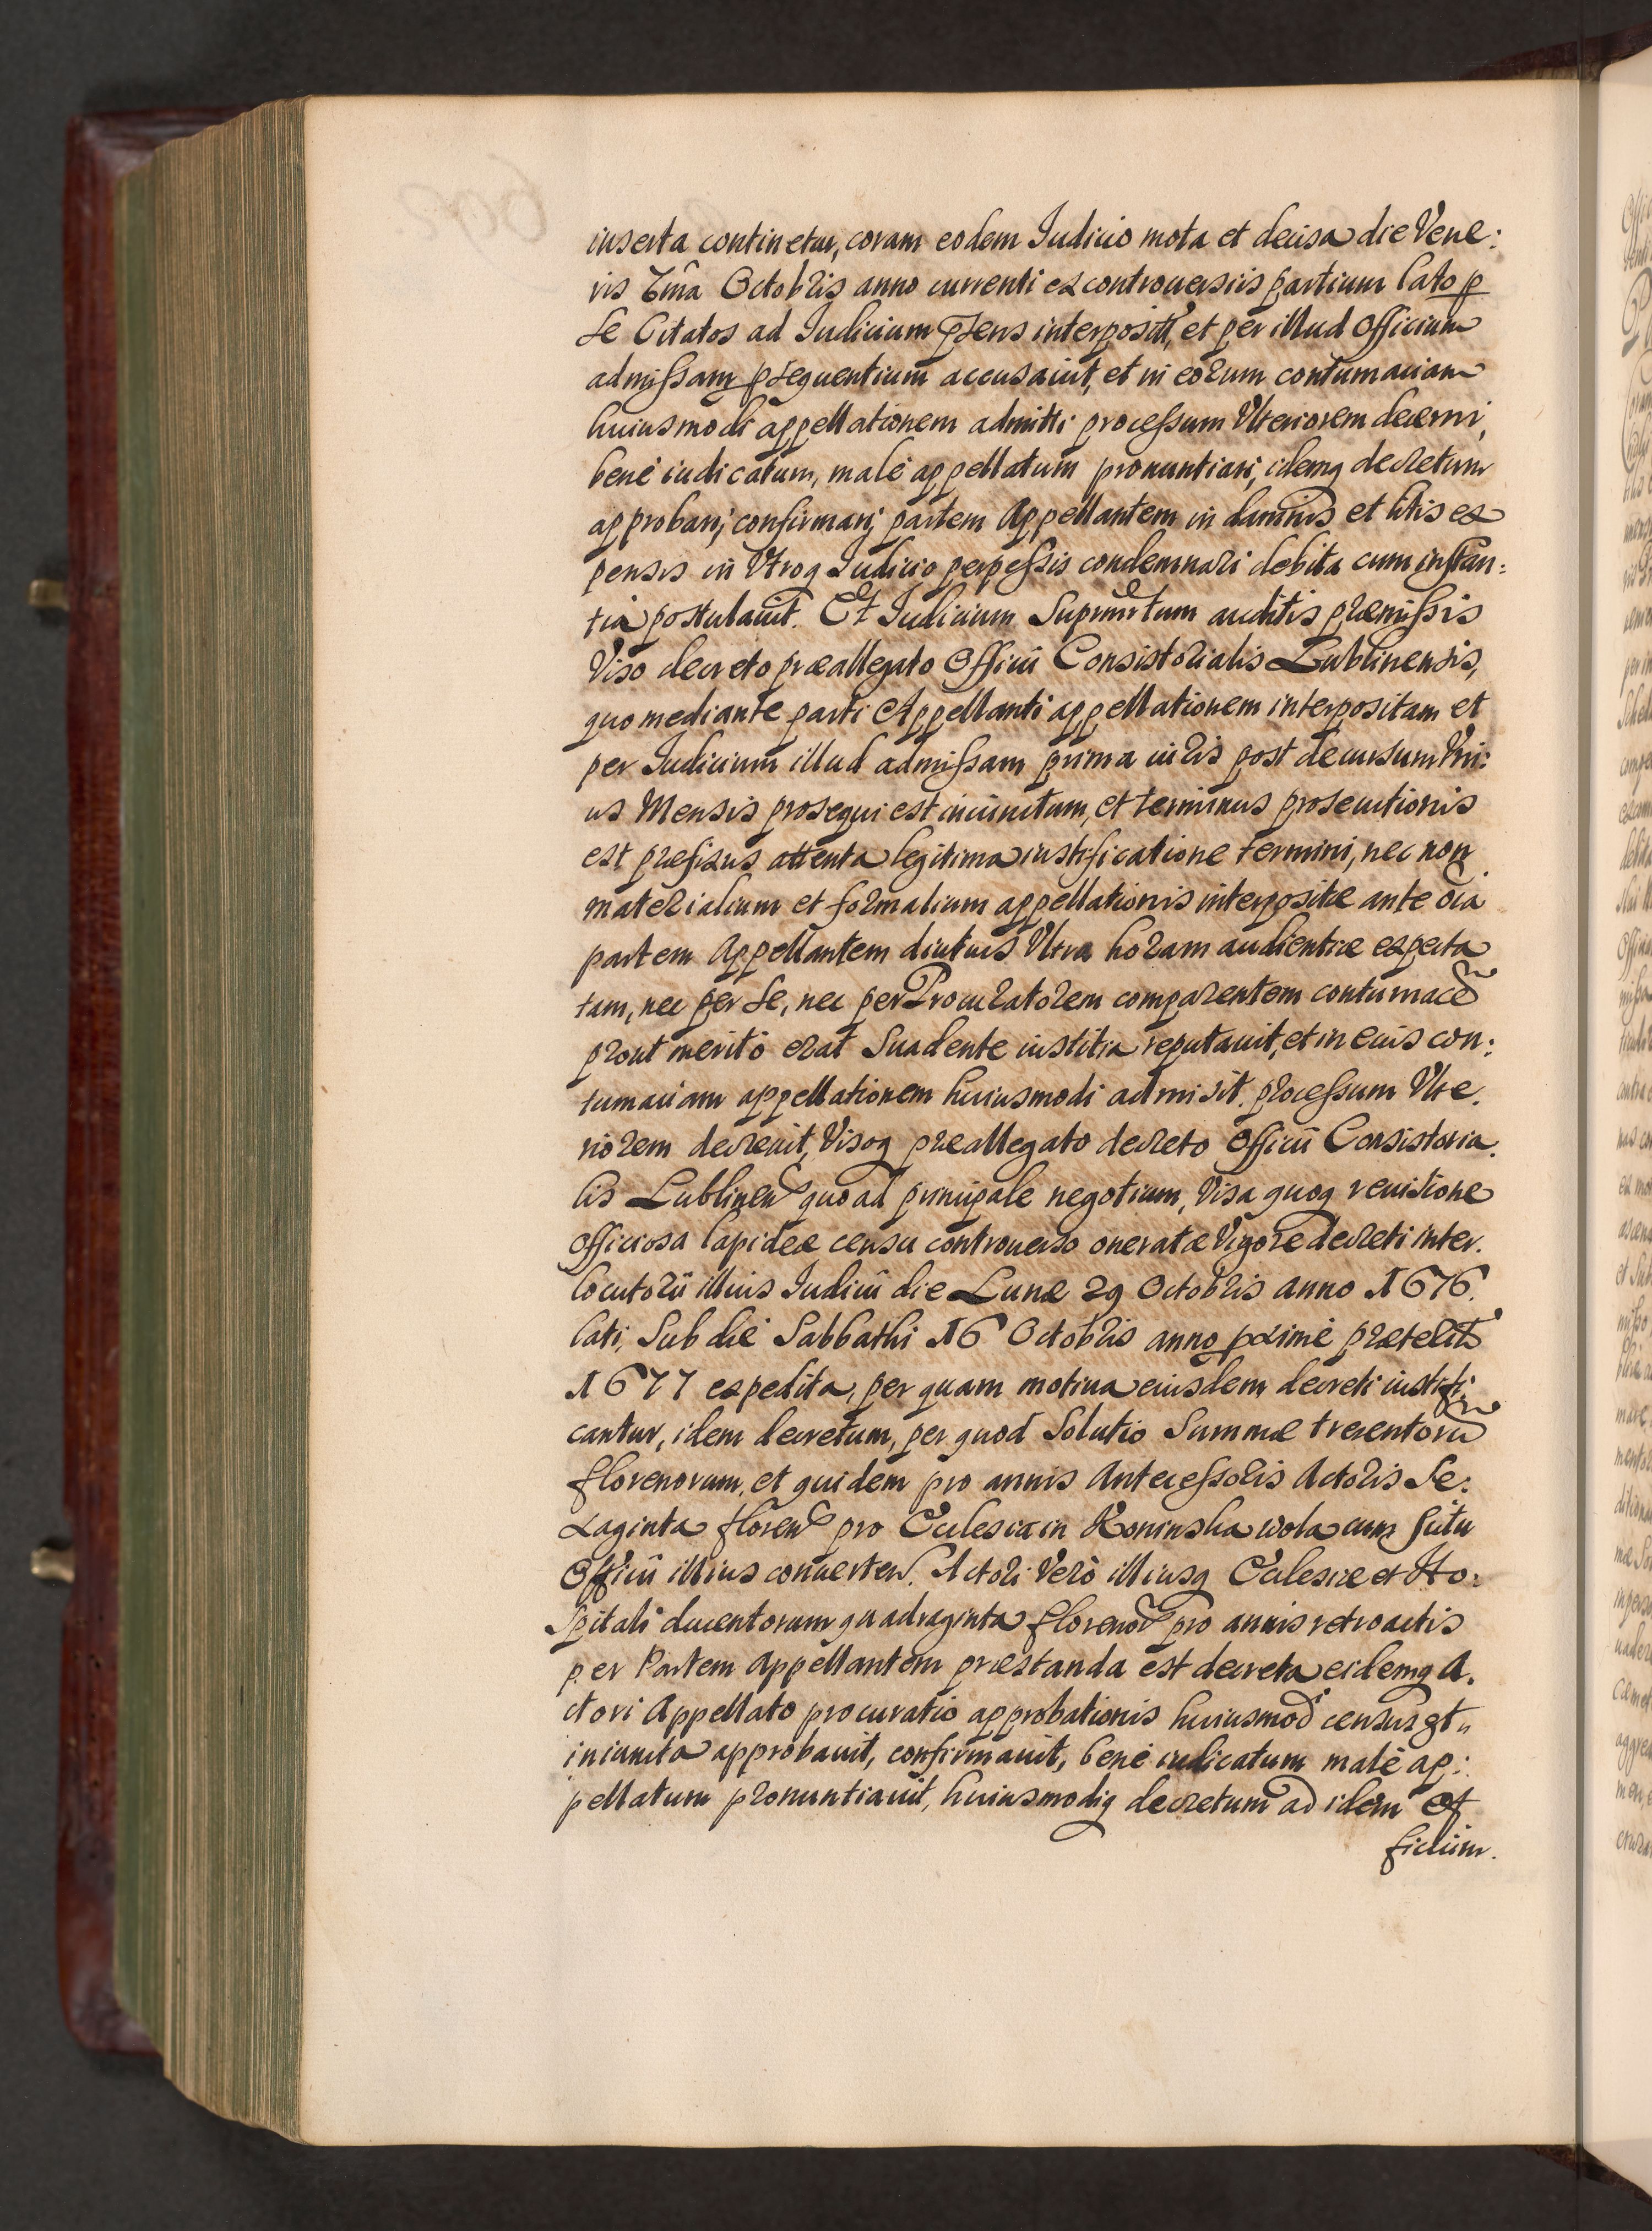 inserta continetur, coram eodem Iudicio mota et decisa die Vene:
ris 7ma Octobris anno currenti ex controuersiis partium lato p
se Citatos ad Iudicium psens interpositt, et per illud Officium
admissam psequentium accusauit, et in eorum contumaciam
huiusmodi appellationem admitti processum Vlteriorem decerni,
bene iudicatum, male appellatum pronuntiari, idemq decretum
approbari, confirmari, partem Appellantem in damnis et litis ex
pensis in Vtroq Iudicio perpessis condemnari debita cum instan:
tia postulauit. Et Iudicium Supmtum auditis præmissis
Viso decreto præallegato Officii Consistorialis Lublinensis,
quo mediante parti Appellanti appellationem interpositam et
per Iudicium illud admissam prima iuris post decursum Vni:
us Mensis prosequi est iniunctum, et terminus prosecutionis
est præfixus attenta legitima iustificatione termini, nec non
materialium et formalium appellationis interpositæ ante oia
partem Appellantem diutius Vltra horam audientiæ expecta
tam, nec per se, nec per Procuratorem comparentem contumace
prout merito erat Suadente iustitia reputauit, et in eius con:
tumaciam appellationem huiusmodi admisit. processum Vlte.
riorem decreuit, Visoq præallegato decreto Officii Consistoria.
lis Lublinen quo ad principale negotium, Visa quoq reuisione
Officiosa lapideæ censu controuerso oneratæ Vigore decreti inter.
locutorii illius Iudicii die Lunæ 29 Octobris anno 1676.
lati, Sub die Sabbathi 16 Octobris anno pxime præterit
1677 expedita, per quam motiua eiusdem decreti iustifi:
cantur, idem decretum, per quod Solutio Summæ trecentoru
florenorum, et quidem pro annis Antecessoris Actoris Se:
xaginta floren pro Ecclesia in Koninska wola cum scitu
Officii illius conuerten. Actori Vero illiusq Ecclesiæ et Ho:
spitali ducentorum quadraginta florenor pro annis retroactis
per Partem Appellantem præstanda est decreta eidemq A.
ctori Appellato procuratio approbationis huiusmod census est
iniuncta approbauit, confirmauit, bene iudicatum male ap:
pellatum pronuntiauit, huiusmodiq decretum ad idem Of
ficium.